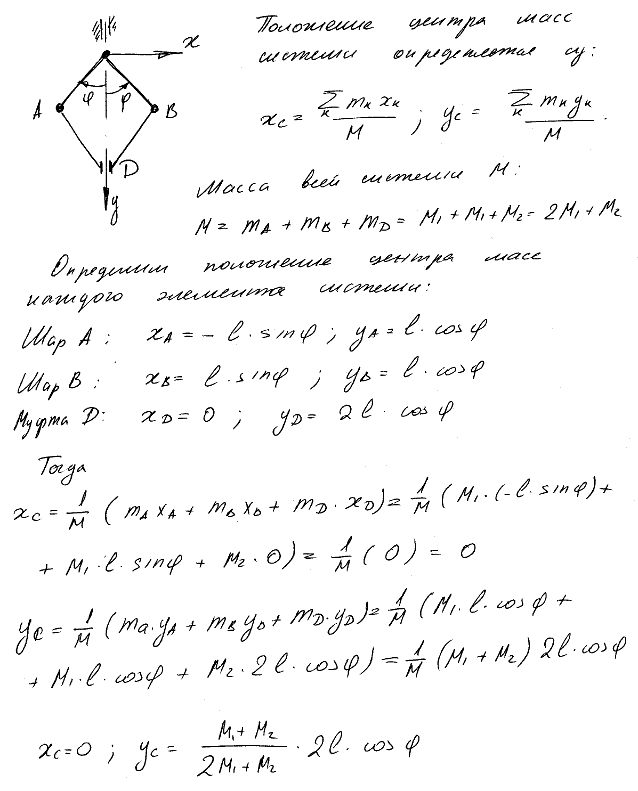 Положение центра масс
системы определяется су:
x_C = Σ_k m_k x_k / M ; y_C = Σ_k m_k y_k / M .
x
φ φ
A B
D
y
Масса всей системы M:
M = m_A + m_B + m_D = M₁ + M₁ + M₂ = 2M₁ + M₂
Определим положение центра масс
каждого элемента системы:
Шар A : x_A = - l · sinφ ; y_A = l · cosφ
Шар B : x_B = l · sinφ ; y_B = l · cosφ
Муфта D: x_D = 0 ; y_D = 2l · cosφ
Тогда
x_C = 1/M ( m_A x_A + m_B x_B + m_D · x_D) = 1/M ( M₁ · (-l · sinφ) +
+ M₁ · l · sinφ + M₂ · 0) = 1/M ( 0 ) = 0
y_C = 1/M (m_a · y_A + m_B y_B + m_D · y_D) = 1/M (M₁ · l · cosφ +
+ M₁ · l · cosφ + M₂ · 2l · cosφ) = 1/M (M₁ + M₂) 2l · cosφ
x_C = 0 ; y_C = M₁ + M₂ / 2M₁ + M₂ · 2l · cosφ